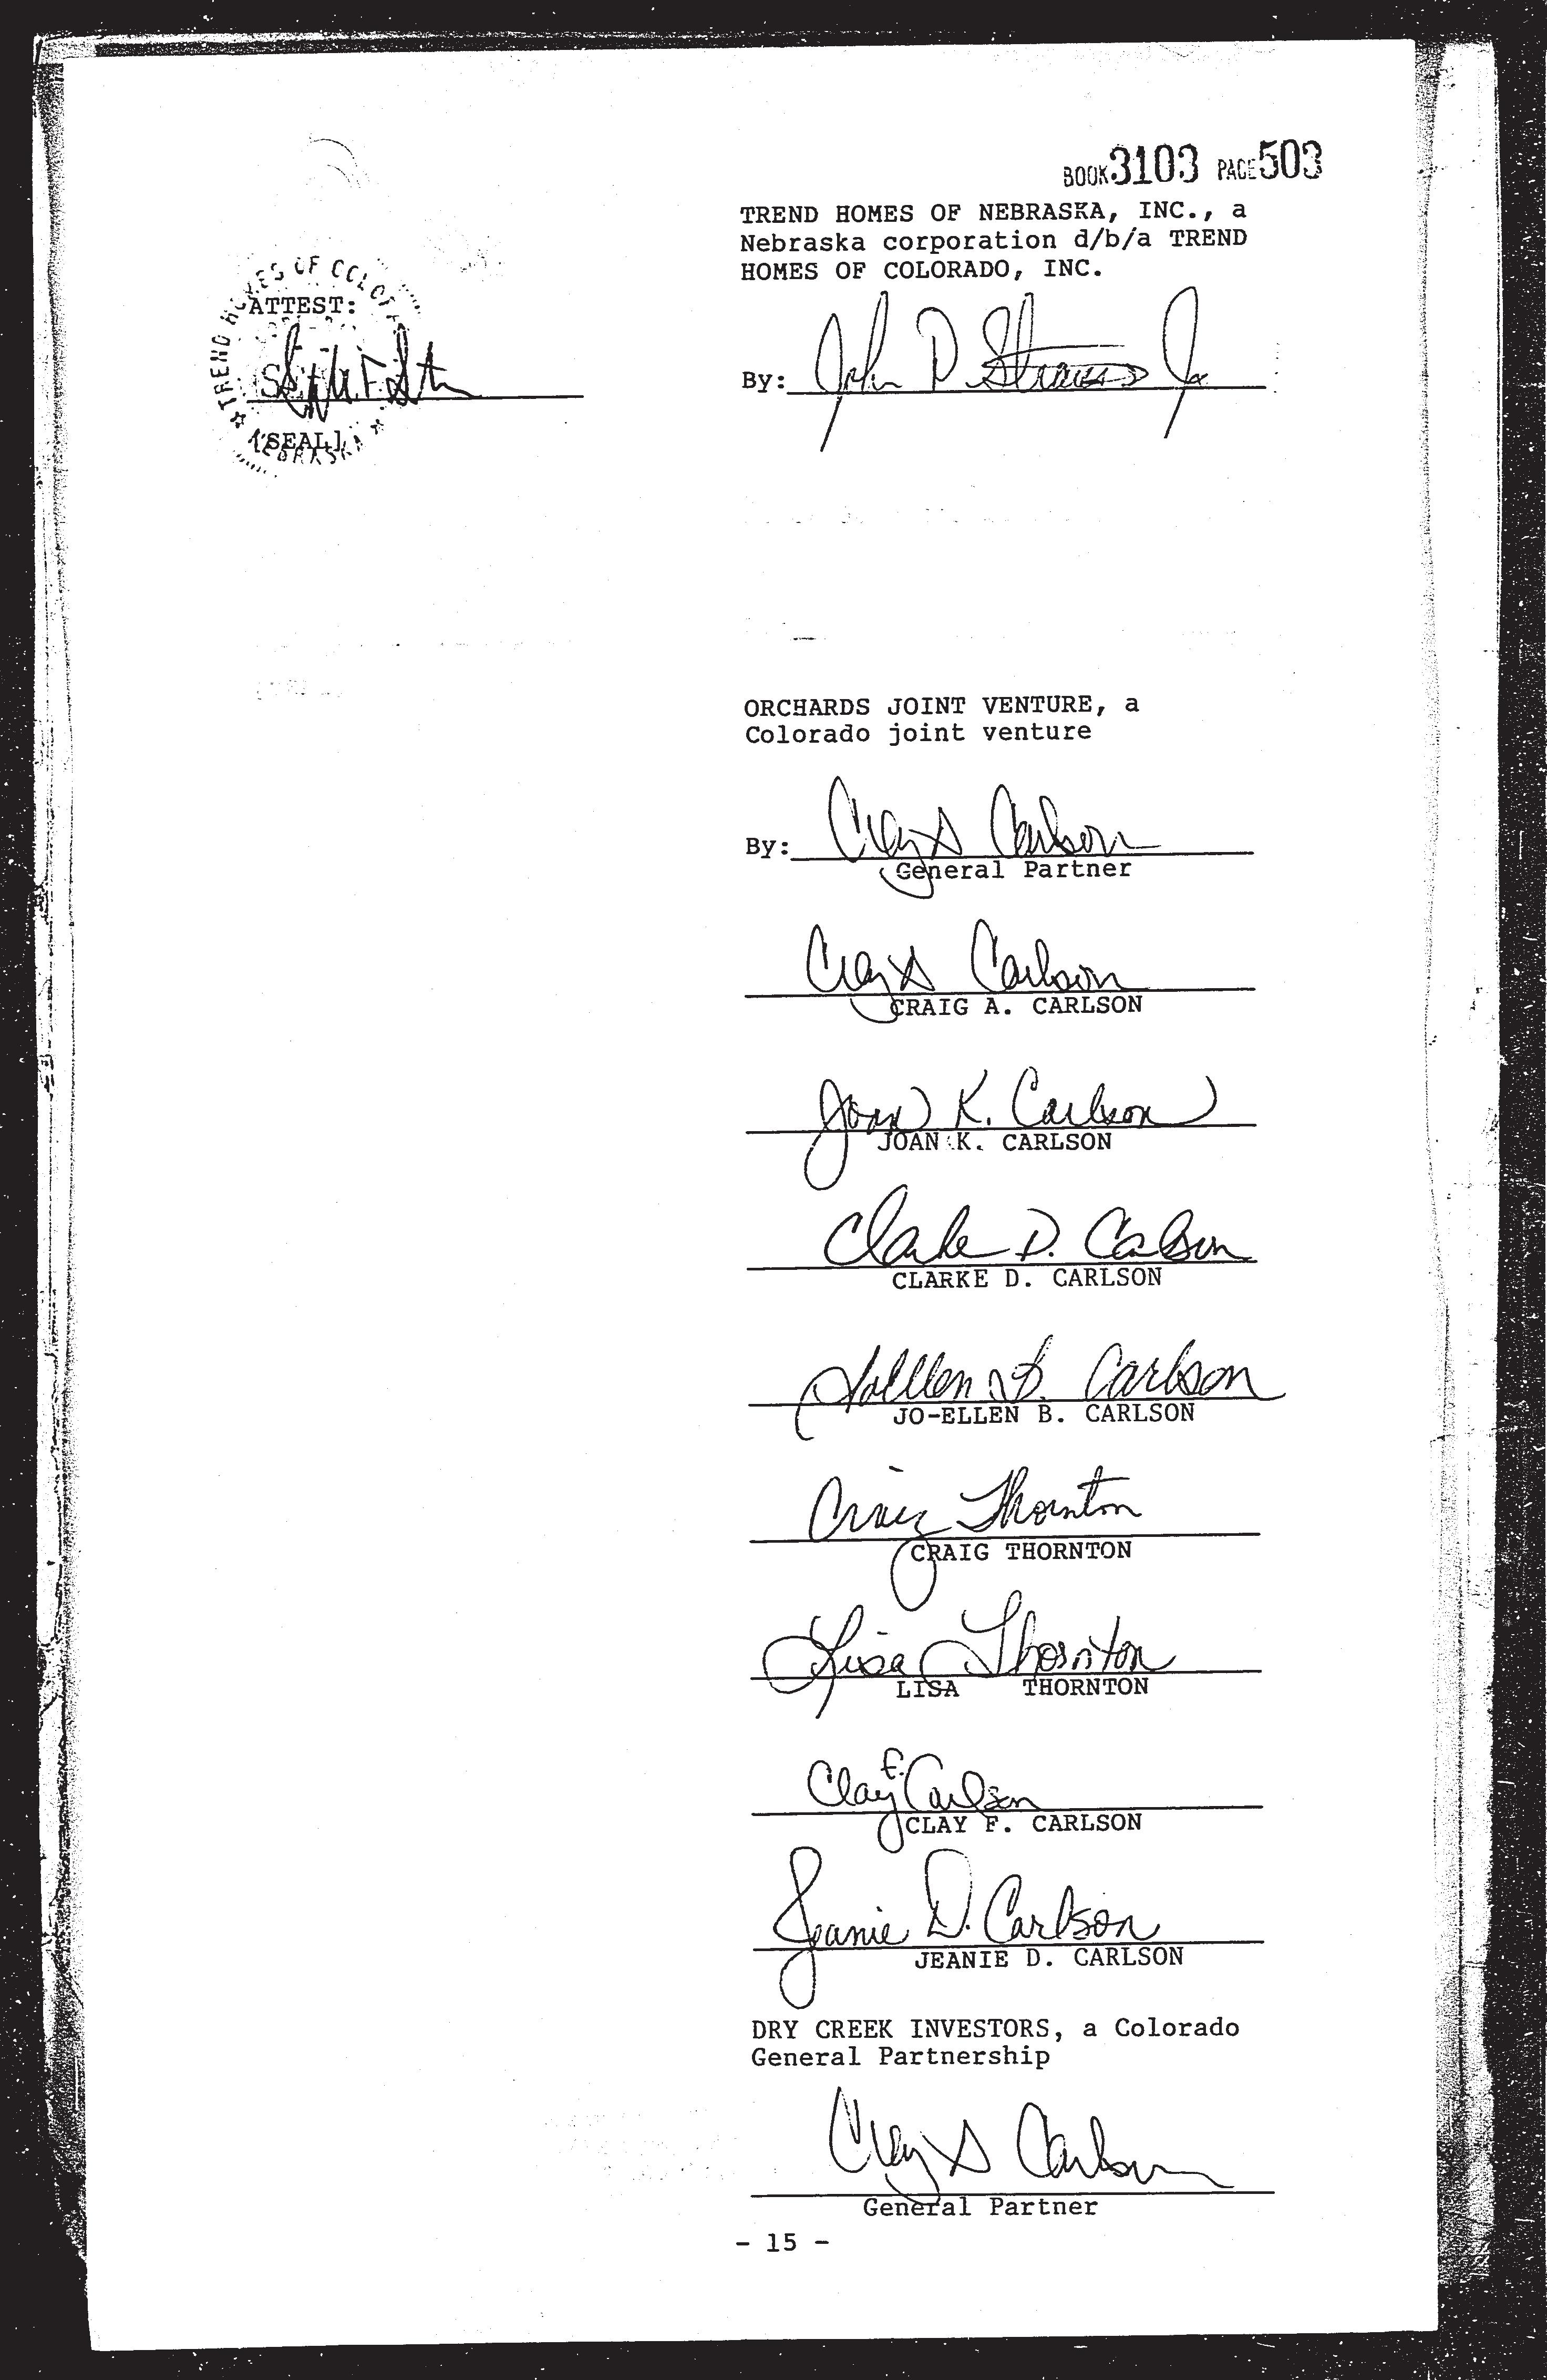 BOOK 3103 PAGE 503
TREND HOMES OF NEBRASKA, INC., a
Nebraska corporation d/b/a TREND
HOMES OF COLORADO, INC.
ATTEST:
TREND HOMES OF COLORADO
SEAL
NEBRASKA
[SEAL]
By: John P Strauss Jr
ORCHARDS JOINT VENTURE, a
Colorado joint venture
By: Craig A Carlson
General Partner
Craig A Carlson
CRAIG A. CARLSON
Joan K. Carlson
JOAN K. CARLSON
Clarke D. Carlson
CLARKE D. CARLSON
JoEllen B. Carlson
JO-ELLEN B. CARLSON
Craig Thornton
CRAIG THORNTON
Lisa Thornton
LISA THORNTON
Clay F. Carlson
CLAY F. CARLSON
Jeanie D. Carlson
JEANIE D. CARLSON
DRY CREEK INVESTORS, a Colorado
General Partnership
Craig A Carlson
General Partner
- 15 -